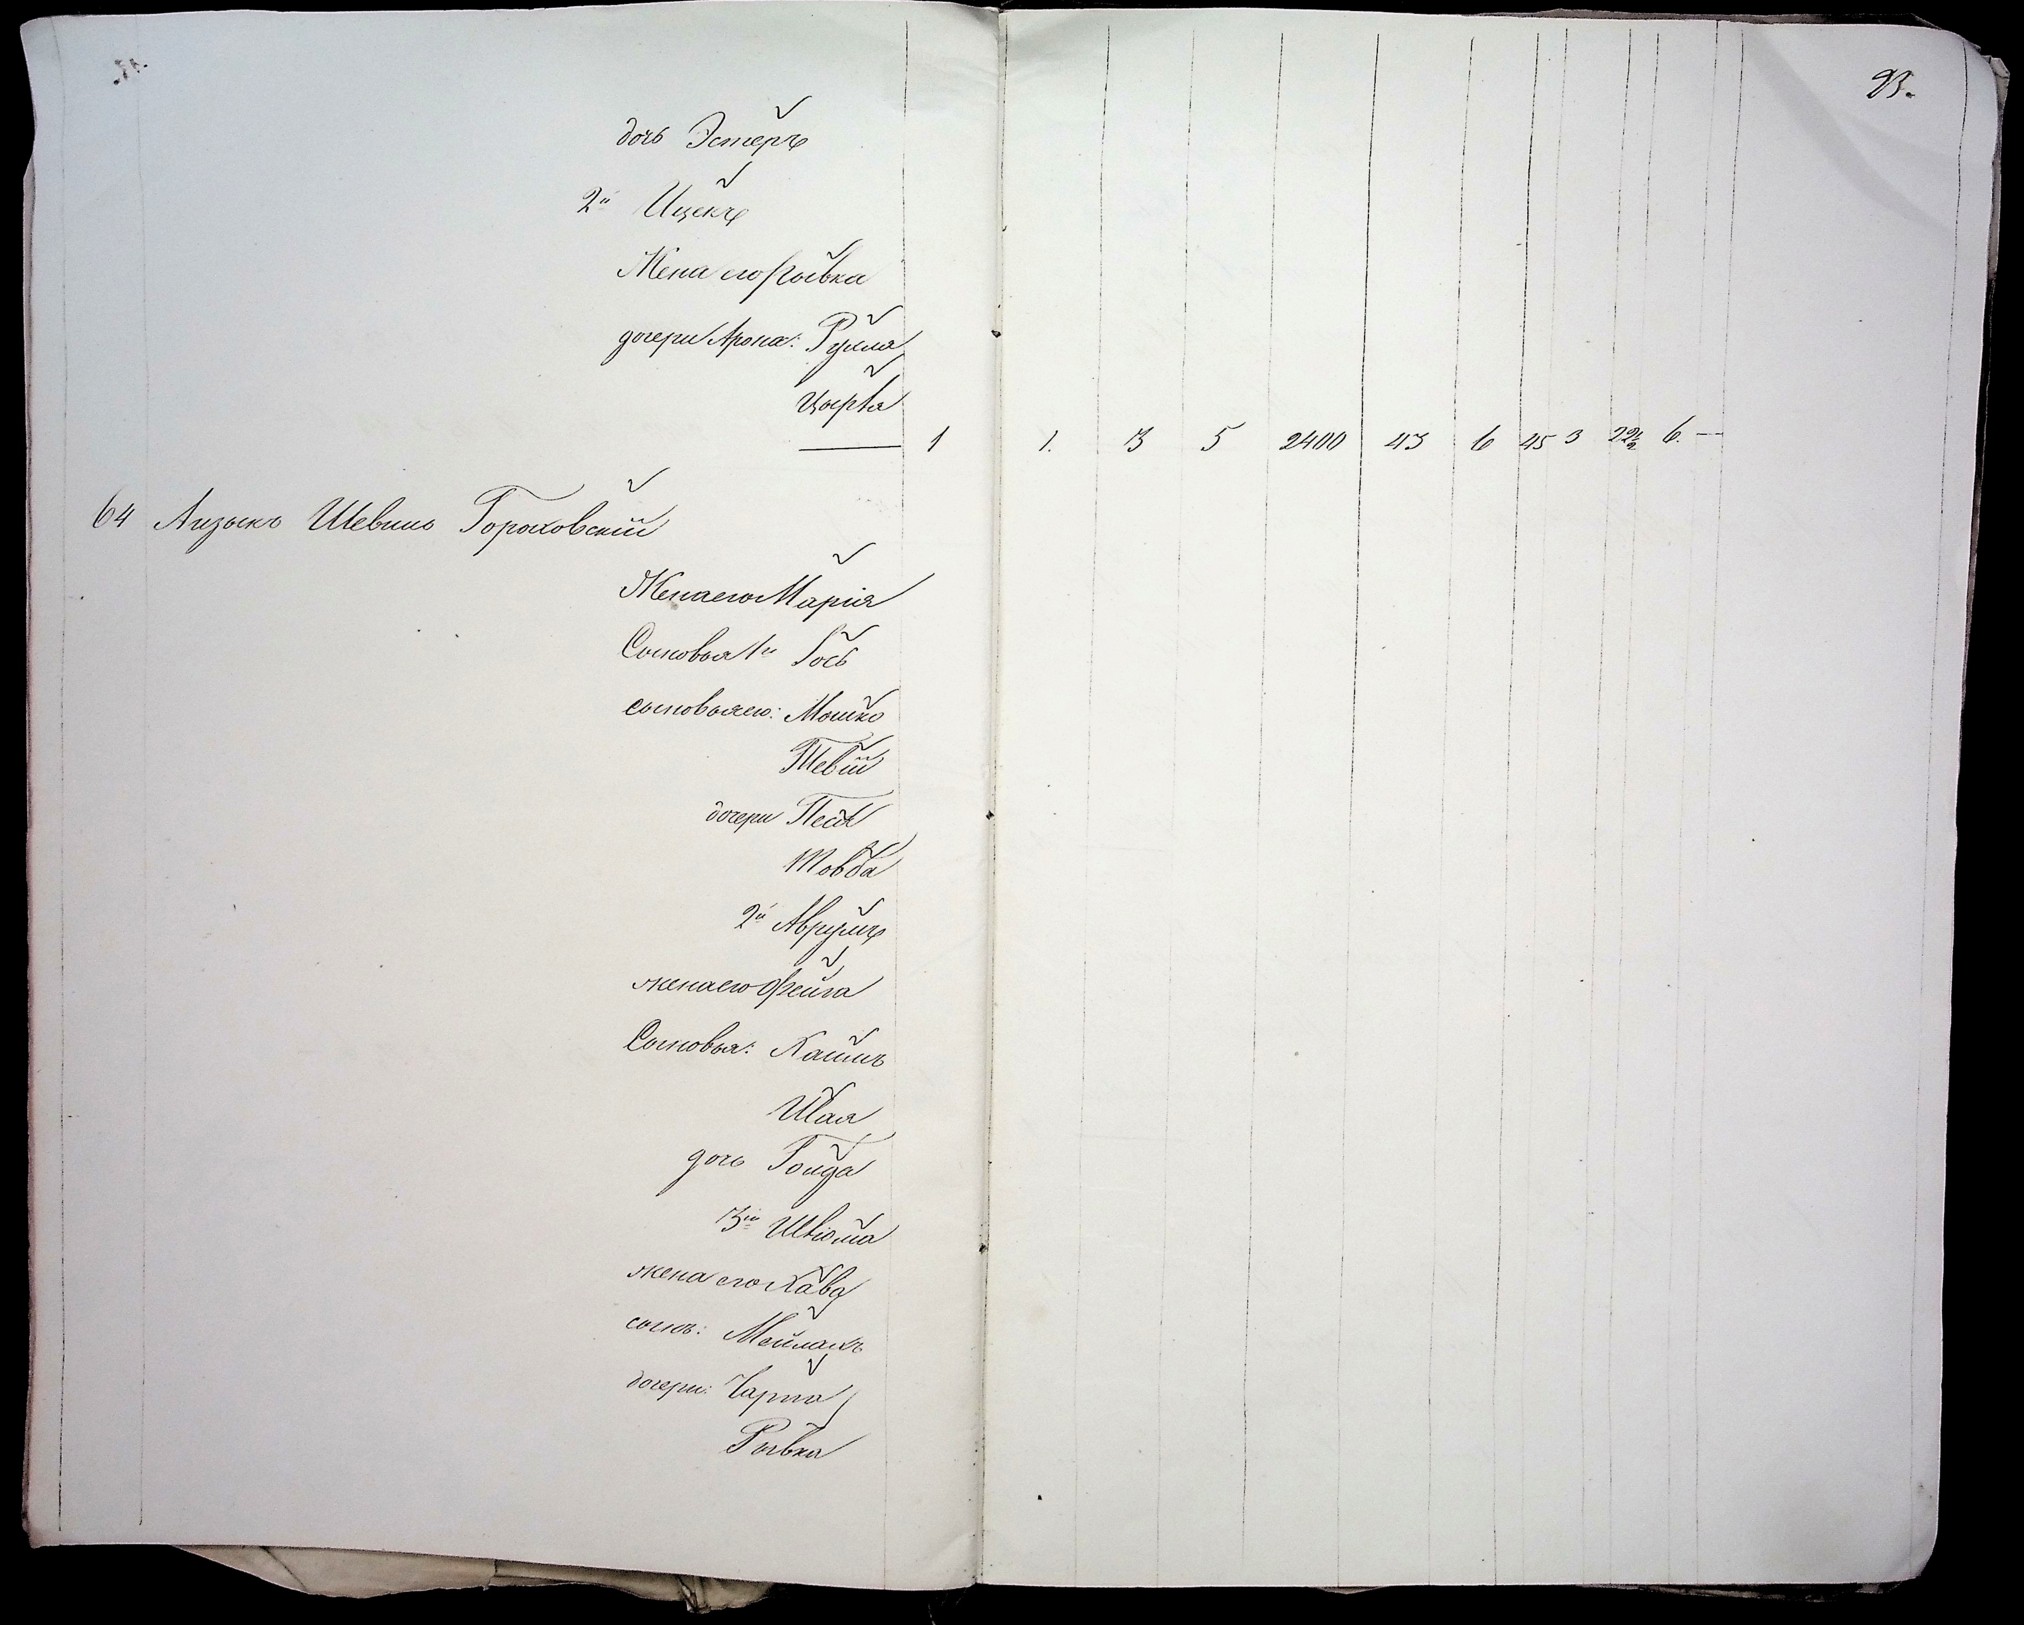 93.
дочь Эстеръ
2й Ицекъ
Жена его Рывка
дочери Арона: Рухля
Цырля
1 1. 3 5 2400 43 6 45 3 22½ 6. —
64 Айзыкъ Шевшо Гороховскій
Жена его Марія
Сыновья 1й Гось
сыновья его: Мошко
Тевій
дочери Песя
Товба
2й Аврумъ
жена его Фейга
Сыновья: Хаимъ
Шая
дочь Голда
3й
жена его Хава
сынъ: Мейлахъ
дочери: Чарна
Рывка